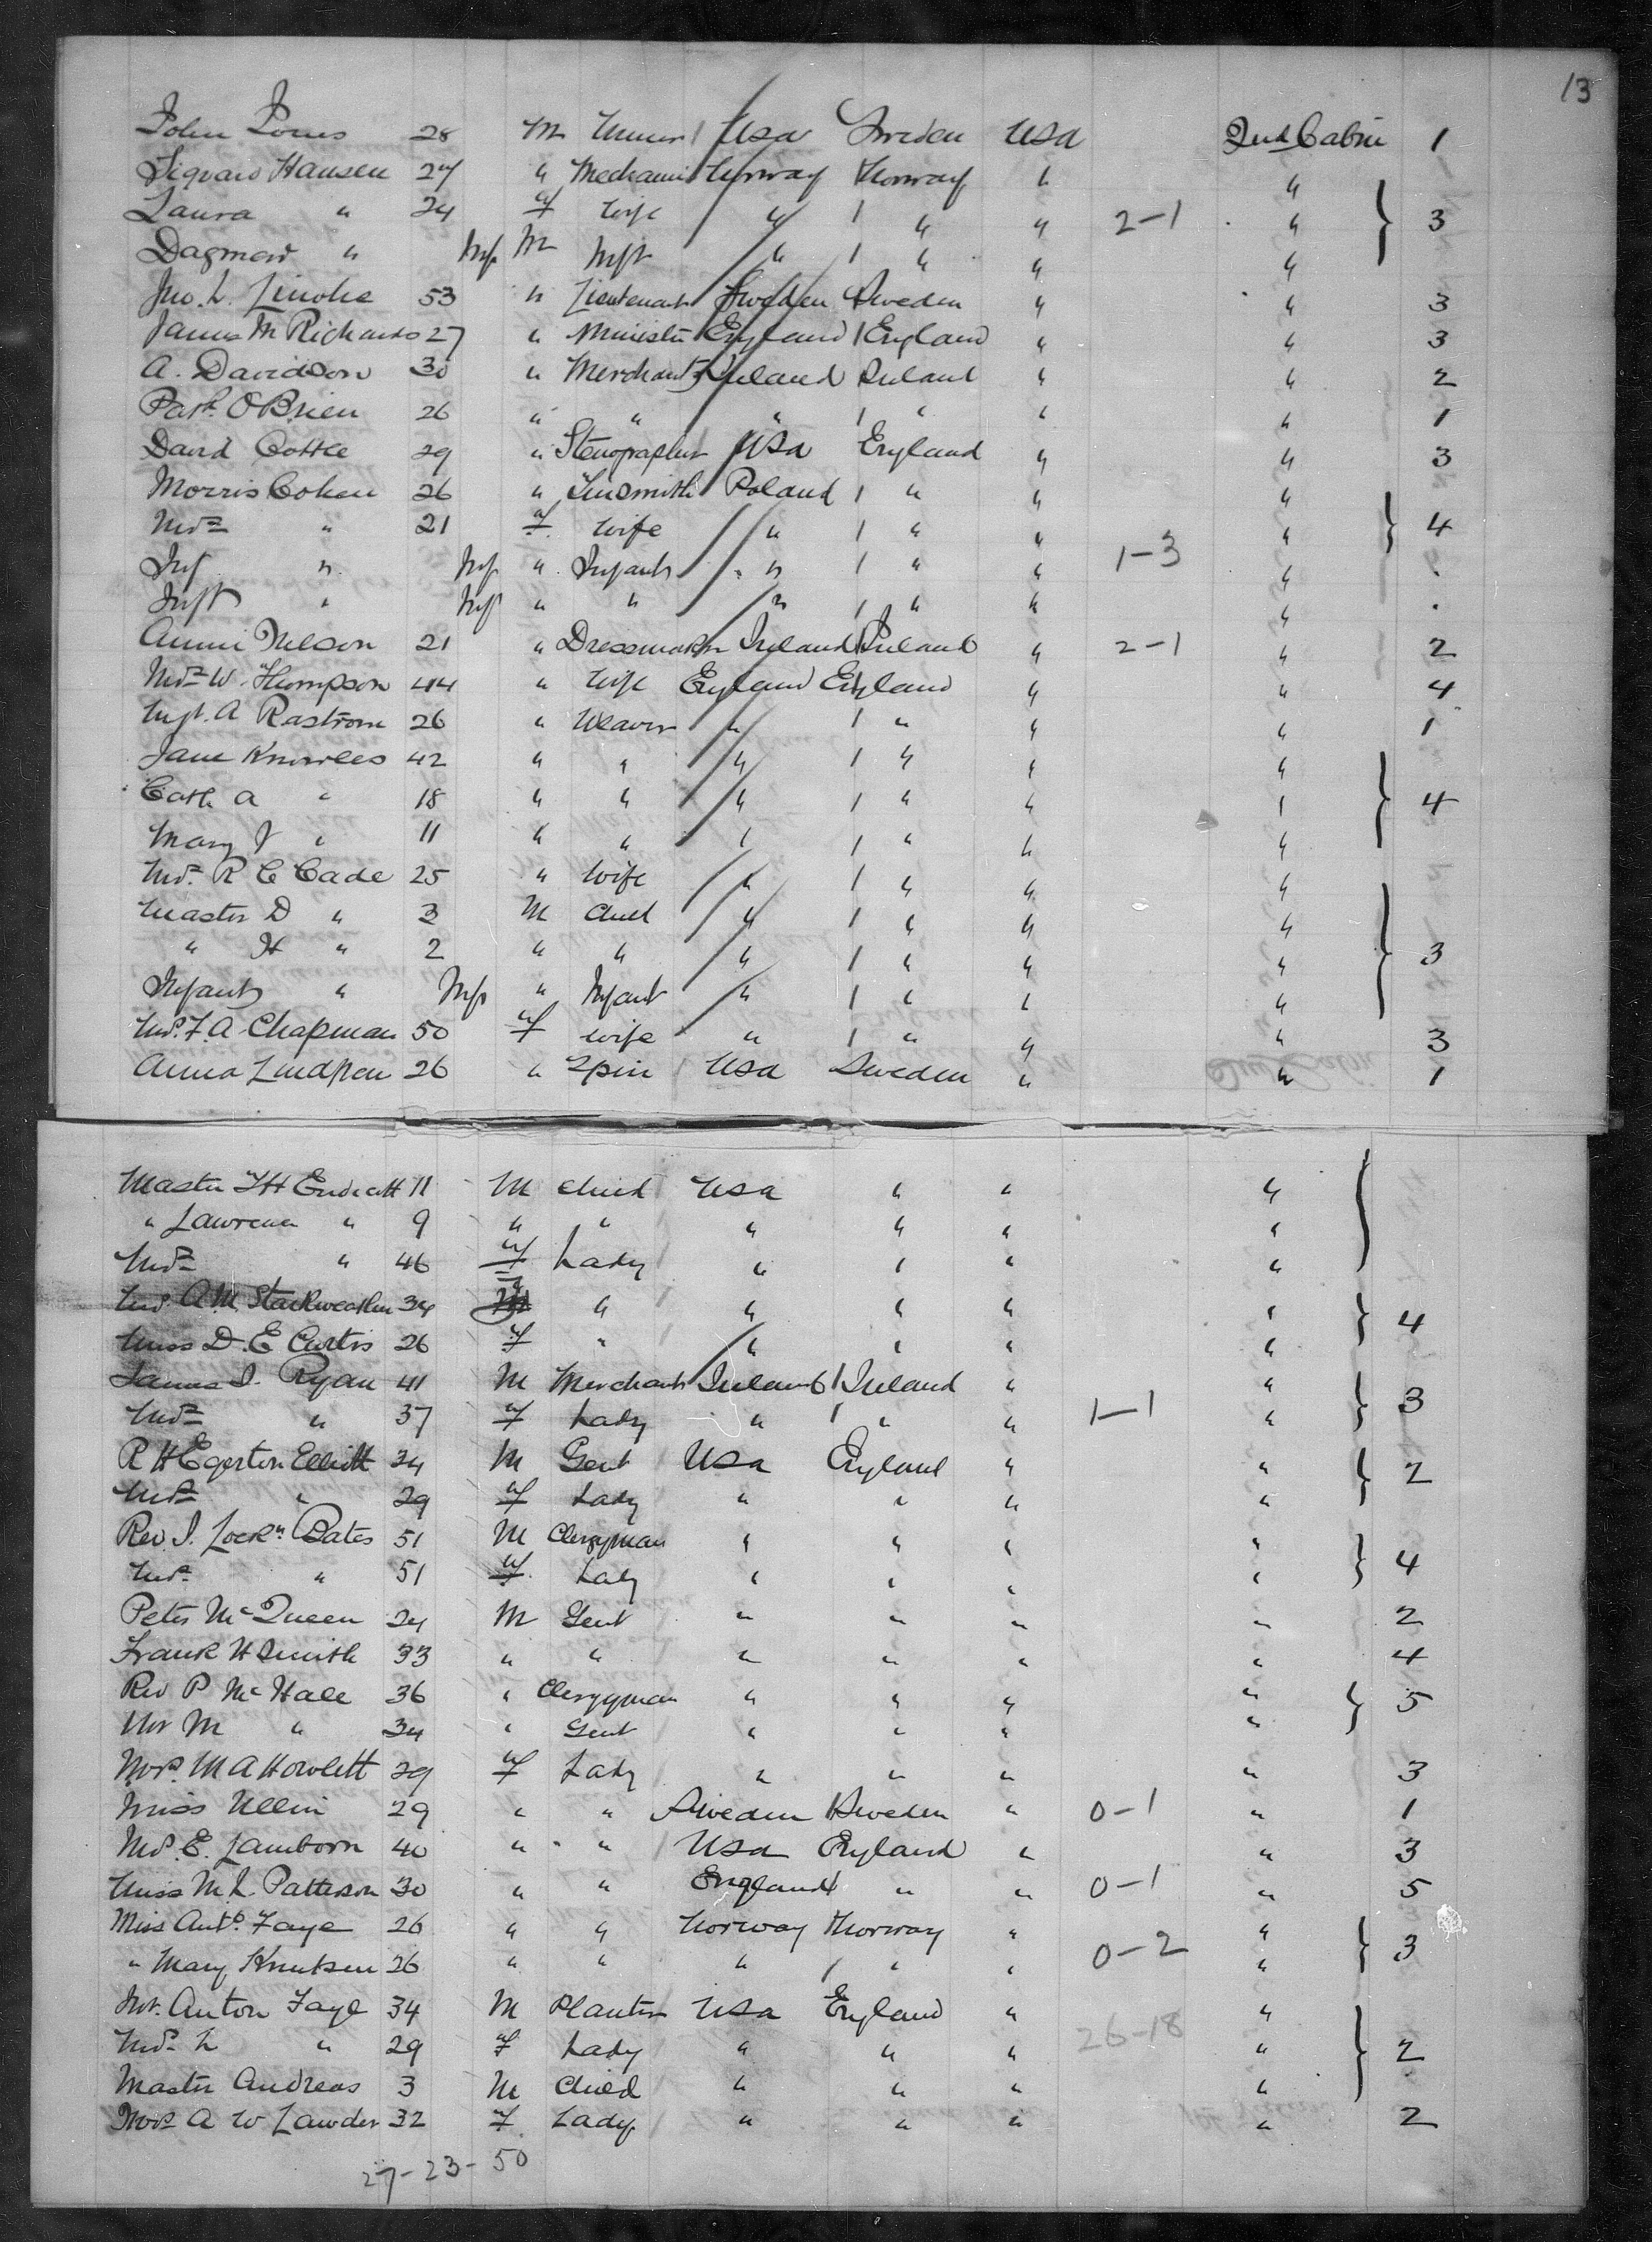 13
John 28 M Miner / Usa Sweden Usa 2nd Cabin 1
Sigvard Hansen 27 " Mechanic Norway Norway " "
Laura " 24 f Wife " / " " 2-1 " 3
Dagmar " Inf M Inft " / " " "
Jno. L. 53 " Lieutenant Sweden Sweden " " 3
James M Richards 27 " Minister England / England " " 3
A. Davidson 30 " Merchant Ireland Ireland " " 2
Patk. O'Brien 26 " " " / " " " 1
David Cottle 29 " Stenographer Usa England " " 3
Morris Cohen 26 " Tinsmith Poland / " " "
Mrs " 21 f wife " / " " " 4
Inf " Inf " Infant " / " " 1-3 "
Inft " Inf " " " / " " "
Annie Nelson 21 " Dressmaker Ireland / Ireland " 2-1 " 2
Mrs W. Thompson 44 " Wife England England " " 4
Mgt. A Rastrom 26 " Weaver " / " " " 1
Jane Knowles 42 " " " / " " "
Cath A " 18 " " " / " " " 4
Mary J " 11 " " " / " " "
Mrs. R C Cade 25 " Wife " / " " "
Master D " 3 M Child " / " " "
" H " 2 " " " / " " " 3
Infant " Inf " Infant " / " " "
Mrs. F. A. Chapman 50 f wife " / " " " 3
Anna 26 " Spin / Usa Sweden " " 1
Master T H Endicott 11 M Child Usa " " "
" Lawrence " 9 " " " " " "
Mrs " 46 f Lady " " " "
Mrs. A. M. Starkweather 34 f " " " " " 4
Miss D. E. Curtis 26 f " " " " "
James J. Ryan 41 M Merchant Ireland / Ireland " " 3
Mrs " 37 f Lady " / " " 1-1 "
R H Egerton Elliott 34 M Gent Usa England " " 2
Mrs " 29 f Lady " " " "
Rev. J. Lockn Bates 51 M Clergyman " " " " 4
Mrs. " 51 f Lady " " " "
Peter McQueen 24 M Gent " " " " 2
Frank H Smith 33 " " " " " " 4
Rev P McHale 36 " Clergyman " " " " 5
Mr M " 34 " Gent " " " "
Mrs. M A Howlett 29 f Lady " " " " 3
Miss Ullin 29 " " Sweden / Sweden " 0-1 " 1
Mrs. E. Lamborn 40 " " Usa England " " 3
Miss M. L. Patterson 30 " " England / " " 0-1 " 5
Miss Anto. Faye 26 " " Norway / Norway " " 3
" Mary Knutsen 26 " " " / " " 0-2 "
Mr. Anton Faye 34 M Planter Usa England " "
Mrs L " 29 f Lady " " " 26-18 " 2
Master Andreas 3 M Child " " " "
Mrs A W Lawder 32 f Lady " " " " 2
27-23-50